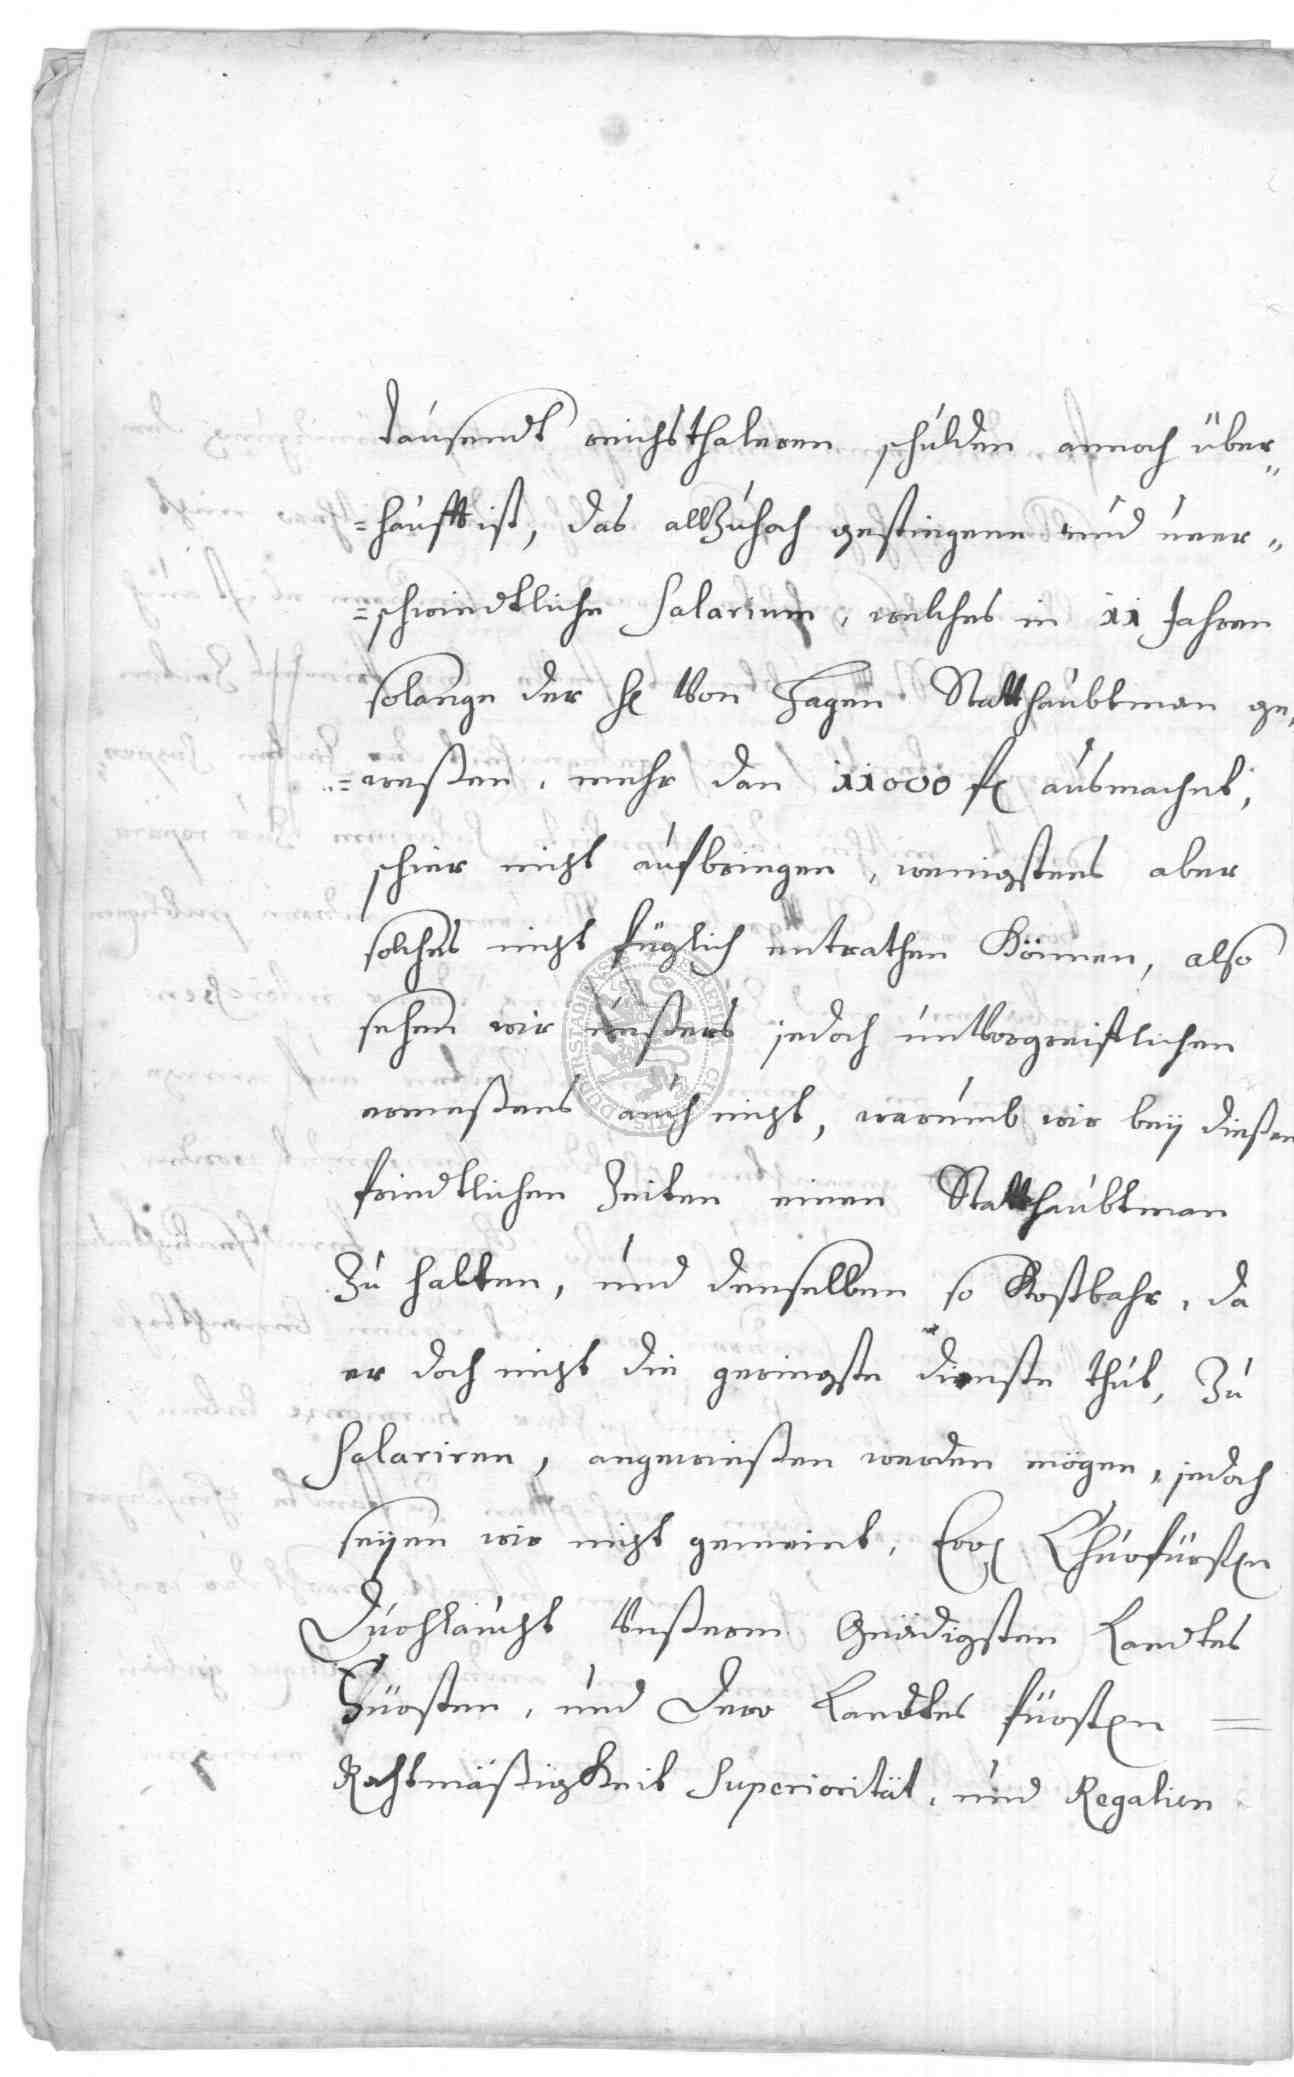 tausendt reichsthaleren schulden annoch über„
=haufft ist, das allzuhoch gestiegene und uner„
=schwindtliche Salarium, welches in 11 Jahren
solange der H. Von Hagen Statthaubtman ge„
=weßen, mehr dan 11000 fl ausmachet,
schier nicht aufbringen, wenigstens aber
solches nicht füglich entrathen Können, also
sehen wir unßers jedoch unVorgreiflichen
ermeßens auch nicht, warumb wir bey dießen
friedtlichen Zeiten einen Statthaubtman
Zu halten, und denselben so Kostbahr, da
er doch nicht die geringste dienste thut, Zu
Salariren, angewießen werden mögen, jedoch
seyen wir nicht gemeint, Ew. Churfürsten
Durchlaucht Unßerem Gnädigsten Landtes
Fürsten, und Dero Landtes fürsten =
Rechtmäßigkeit Superiorität, und Regalien